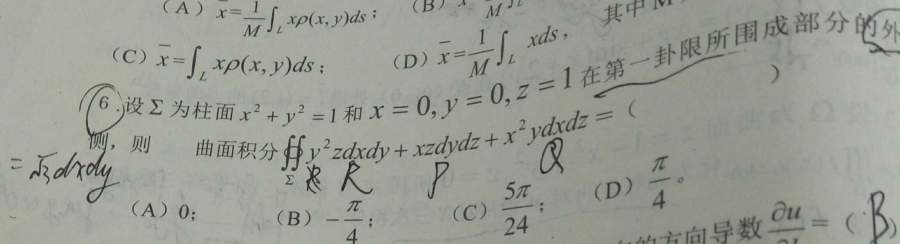 (A) x̄=1/M∫_L xρ(x,y)ds; (B) 其中M
(C) x̄=∫_L xρ(x,y)ds; (D) x̄=1/M∫_L xds,
6.设Σ为柱面 x²+y²=1和x=0,y=0,z=1在第一卦限所围成部分的外
侧, 则 曲面积分∯_Σ y²zdxdy+xzdydz+x²ydxdz=( )
=√3dxdy R P Q
(A) 0; (B) -π/4; (C) 5π/24; (D) π/4。
的方向导数 ∂u/ = (B)